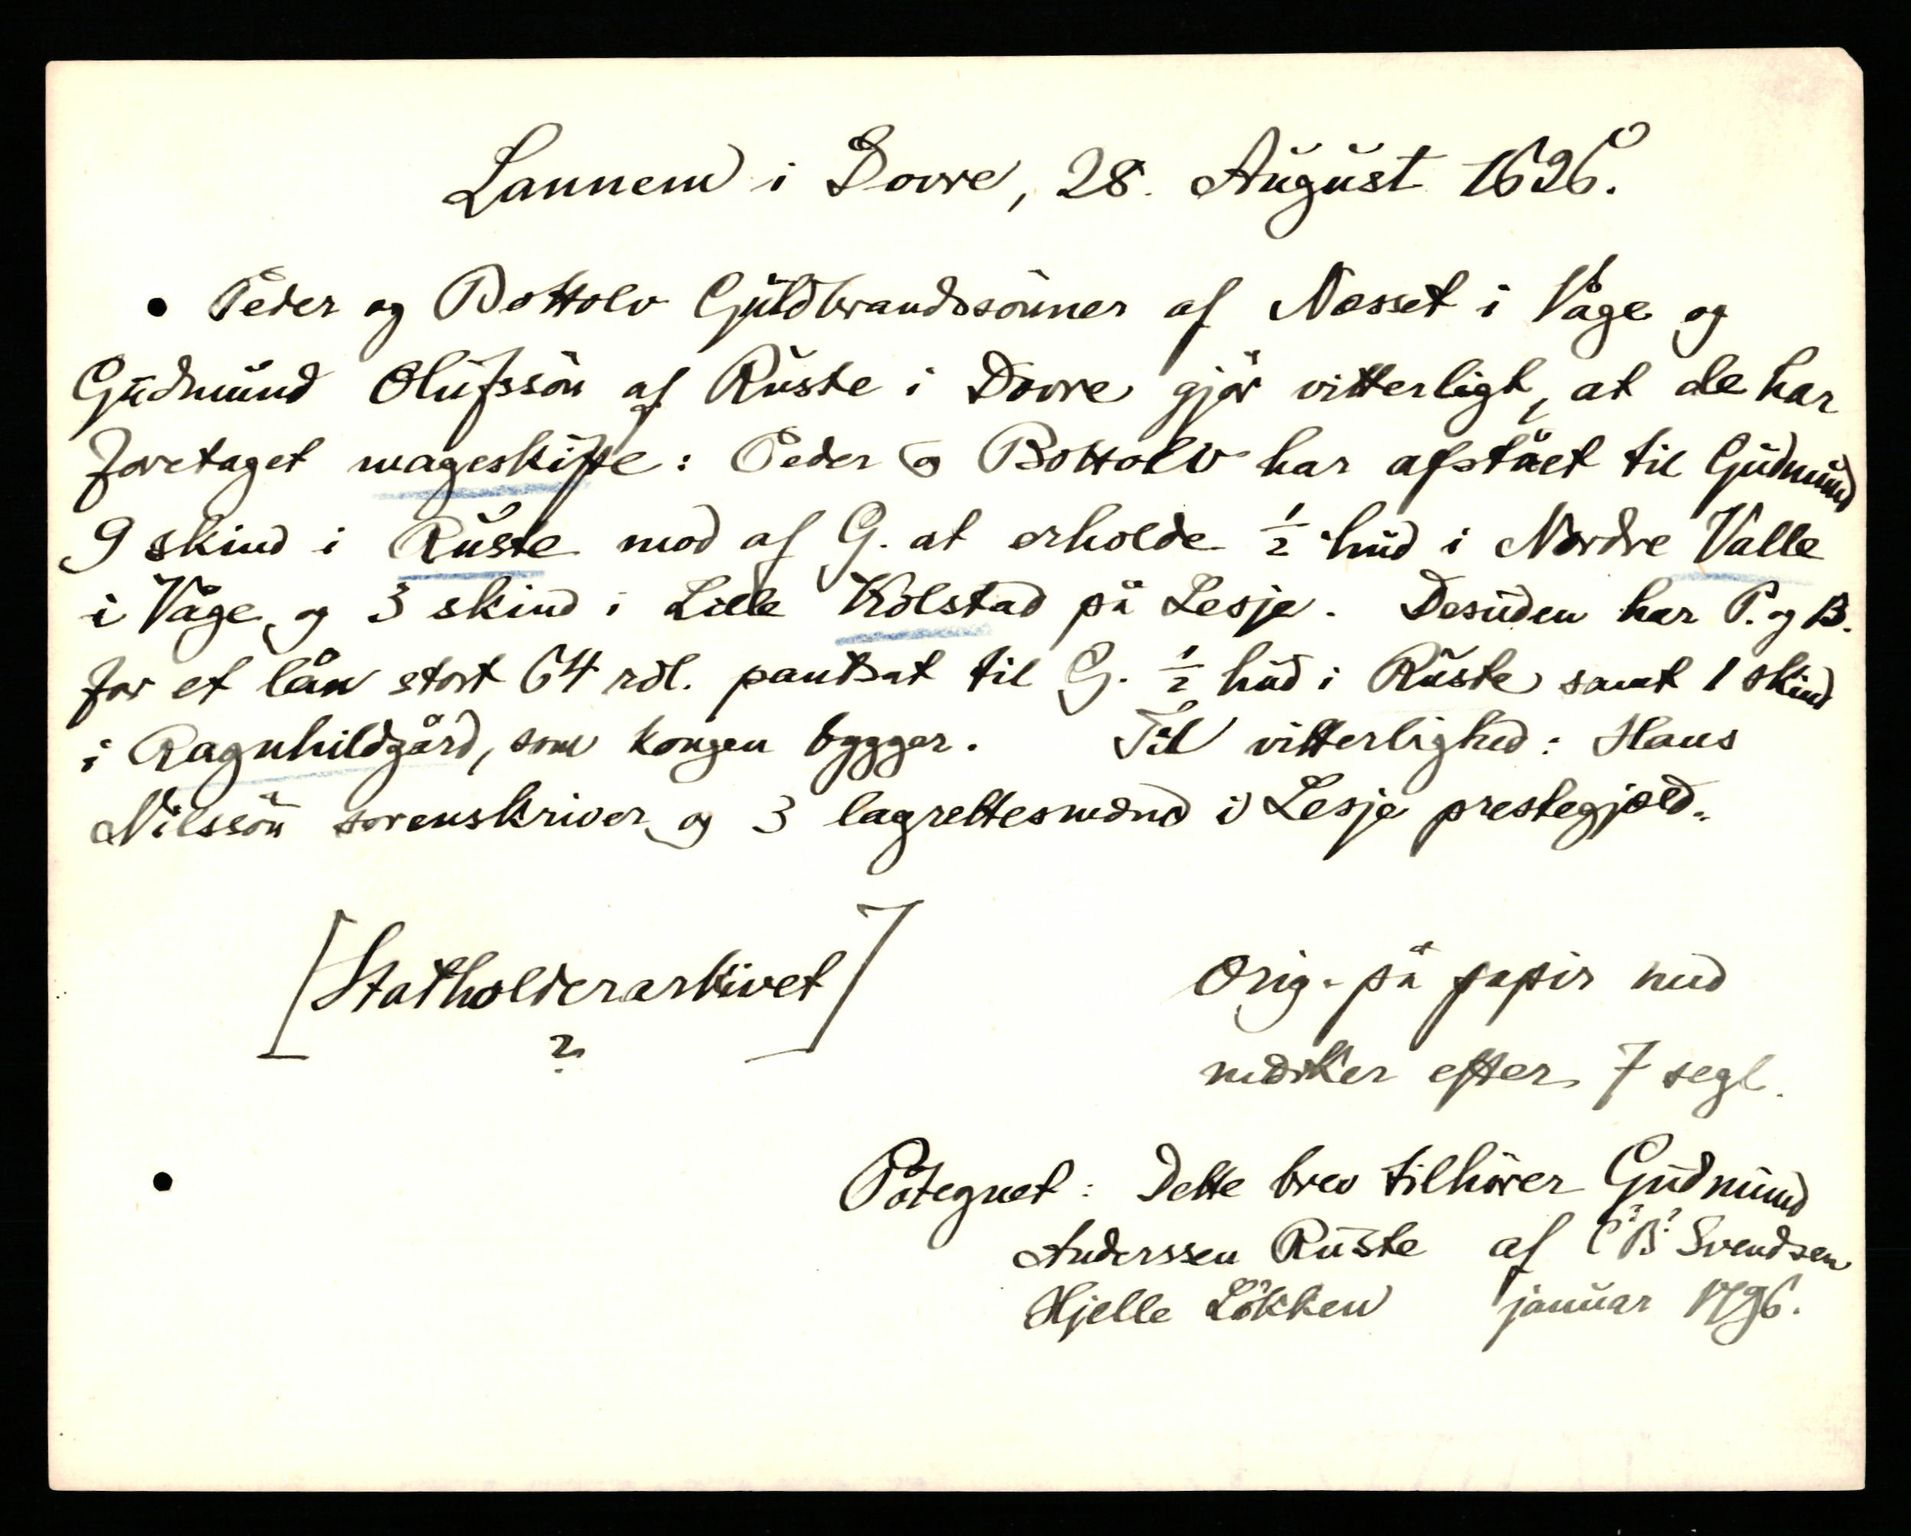 Lannem i Dovre, 28. August 1626.
Peder og Bottolv Guldbrandssönner af Næsset i Våge og
Gudmund Olufssön af Ruste i Dovre gjör vitterligt, at de har
foretaget mageskifte: Peder og Bottolv har afstået til Gudmund
9 skind i Ruste mod af G. at erholde ½ hud i Nordre Valle
i Våge og 3 skind i Lille Kolstad på Lesje. Desuden har P. og B.
for et lån stort 64 rdl. pantsat til G. ½ hud i Ruste samt 1 skind
i Ragnhildgård, som kongen bygger. Til vitterlighed: Hans
Nilssön sorenskriver og 3 lagrettesmænd i Lesje prestegjæld.
[Statholderarkivet]
?
Orig. på papir med
mærker efter 7 segl.
Påtegnet: Dette brev tilhörer Gudmund
Anderssen Ruste af C? B? Svendsen
Hjelle Lökken januar 1796.